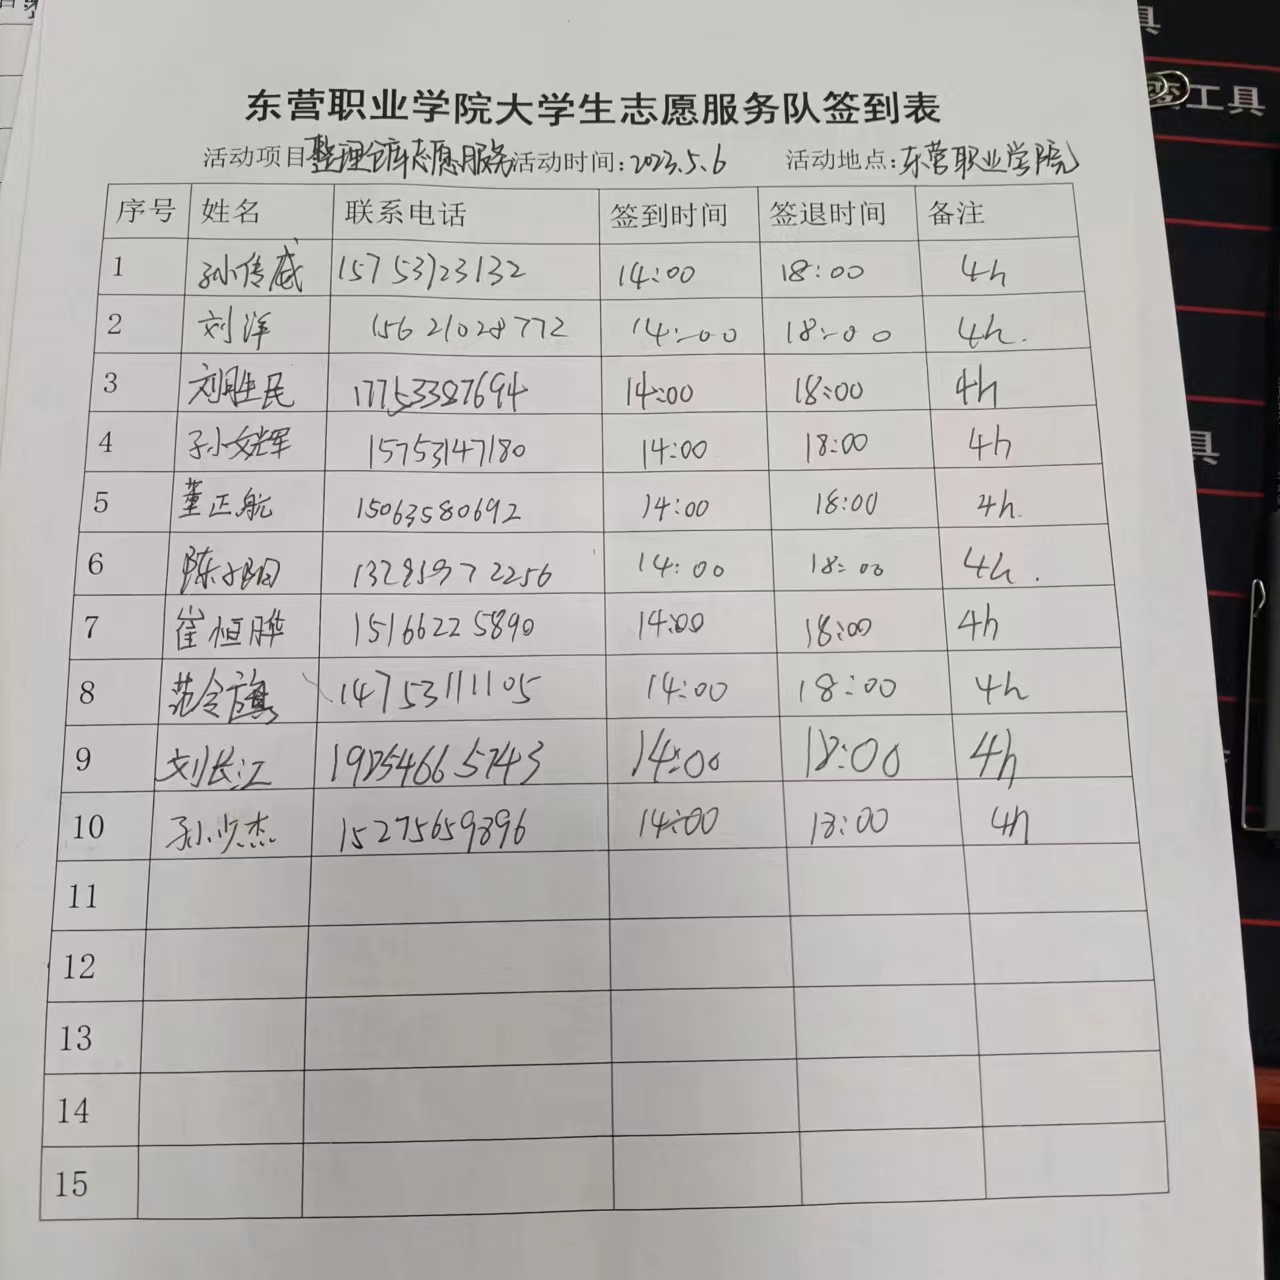 东营职业学院大学生志愿服务队签到表
活动项目 整理仓库志愿服务 活动时间：2023.5.6 活动地点：东营职业学院
序号 姓名 联系电话 签到时间 签退时间 备注
1 孙传威 15753923132 14:00 18:00 4h
2 刘洋 15621028772 14:00 18:00 4h.
3 刘胜民 17753387694 14:00 18:00 4h
4 孙文辉 15753147180 14:00 18:00 4h
5 董正航 15063580692 14:00 18:00 4h.
6 14:00 18:00 4h.
7 崔恒骅 15166225890 14:00 18:00 4h
8 范令旗 14753111105 14:00 18:00 4h
9 刘长江 14:00 18:00 4h
10 孙少杰 15275659896 14:00 18:00 4h
11
12
13
14
15
工具
具
具